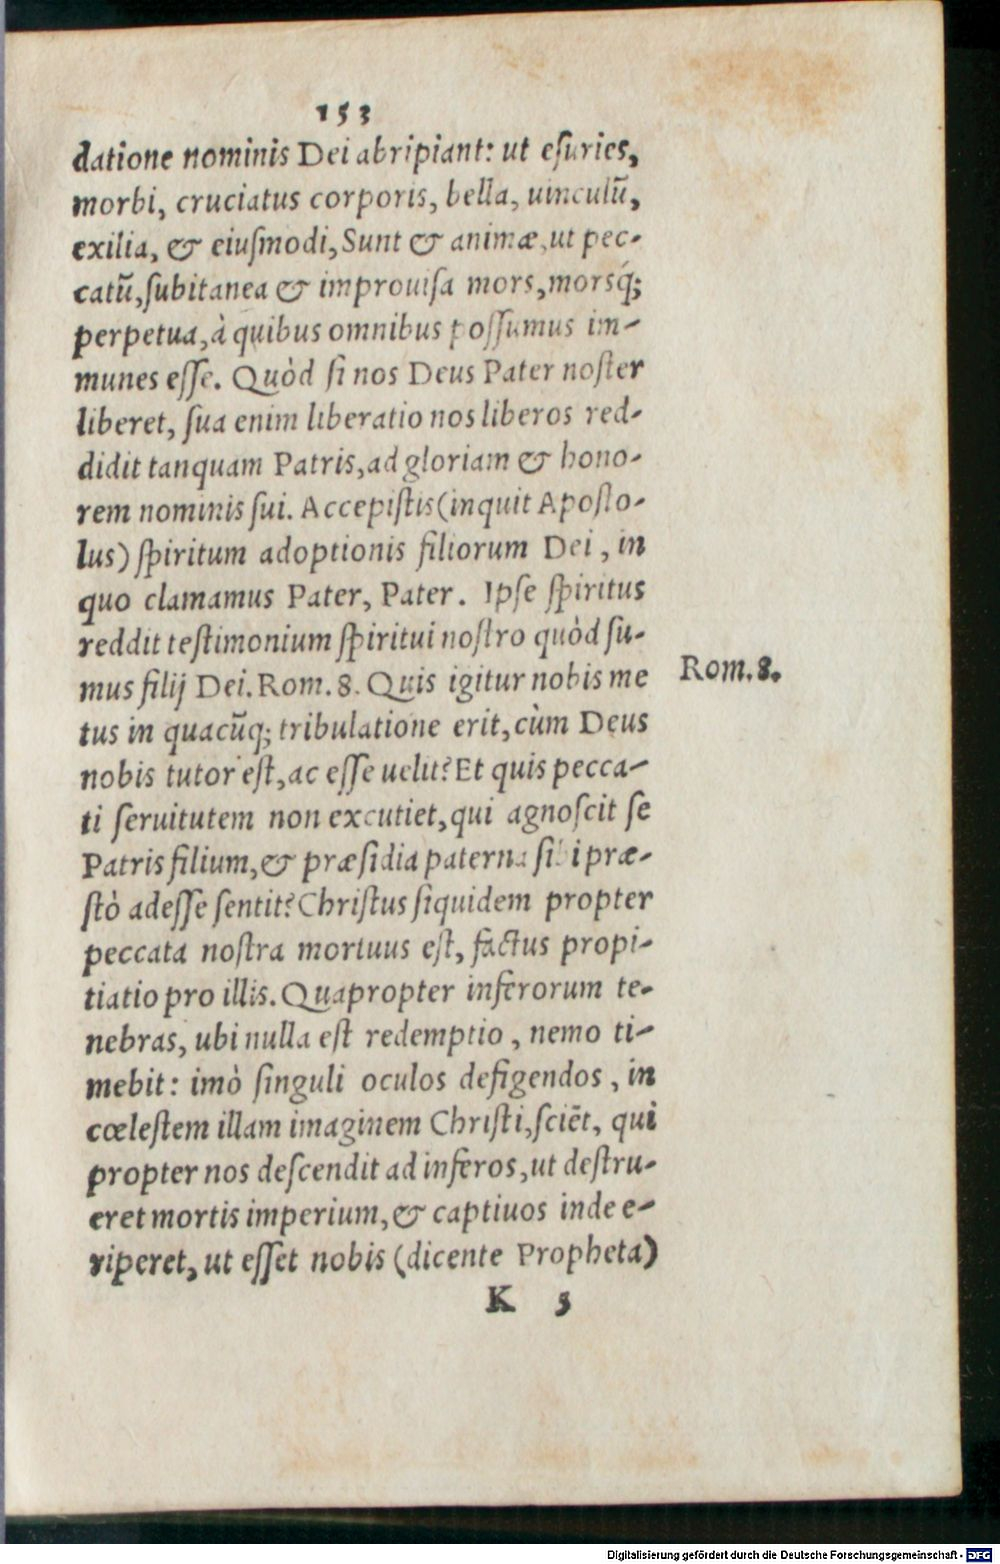 153
datione nominis Dei abripiant: ut eſuries,
morbi, cruciatus corporis, bella, uinculũ,
exilia, & eiuſmodi, Sunt & animæ, ut pec-
catũ, ſubitanea & improuiſa mors, morsq́;
perpetua, à quibus omnibus poſſumus im-
munes eſſe. Quòd ſi nos Deus Pater noſter
liberet, ſua enim liberatio nos liberos red-
didit tanquam Patris, ad gloriam & hono-
rem nominis ſui. Accepiſtis (inquit Apoſto-
lus) ſpiritum adoptionis filiorum Dei, in
quo clamamus Pater, Pater. Ipſe ſpiritus
reddit teſtimonium ſpiritui noſtro quòd ſu-
mus filij Dei. Rom. 8. Quis igitur nobis me
Rom. 8.
tus in quacũq; tribulatione erit, cùm Deus
nobis tutor eſt, ac eſſe uelit? Et quis pecca-
ti ſeruitutem non excutiet, qui agnoſcit ſe
Patris filium, & præſidia paterna ſibi præ-
ſtò adeſſe ſentit? Chriſtus ſiquidem propter
peccata noſtra mortuus eſt, factus propi-
tiatio pro illis. Quapropter inferorum te-
nebras, ubi nulla eſt redemptio, nemo ti-
mebit: imò ſinguli oculos defigendos, in
cœleſtem illam imaginem Chriſti, ſciẽt, qui
propter nos deſcendit ad inferos, ut deſtru-
eret mortis imperium, & captiuos inde e-
riperet, ut eſſet nobis (dicente Propheta)
K 5
Digitalisierung gefördert durch die Deutsche Forschungsgemeinschaft - DFG